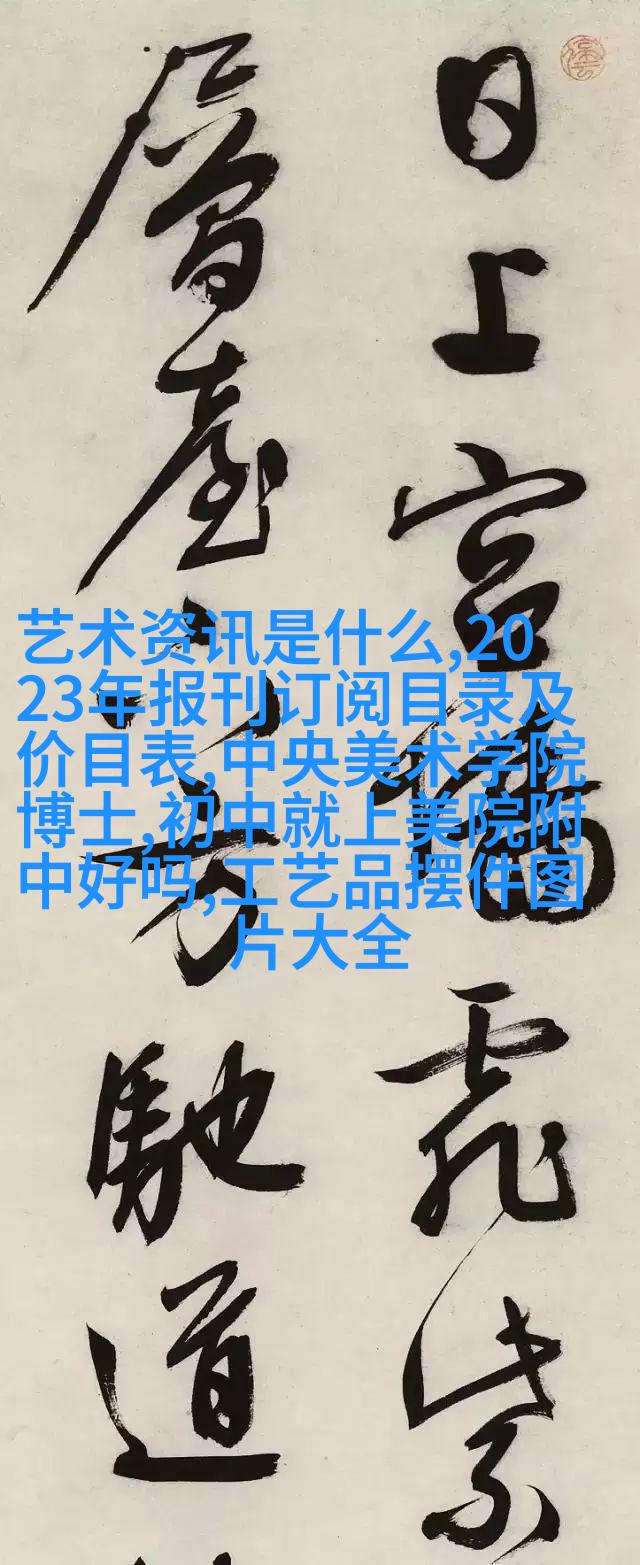 日上宮墻霏紫
層臺馳道
艺术资讯是什么,20
23年报刊订阅目录及
价目表,中央美术学院
博士,初中就上美院附
中好吗,工艺品摆件图
片大全